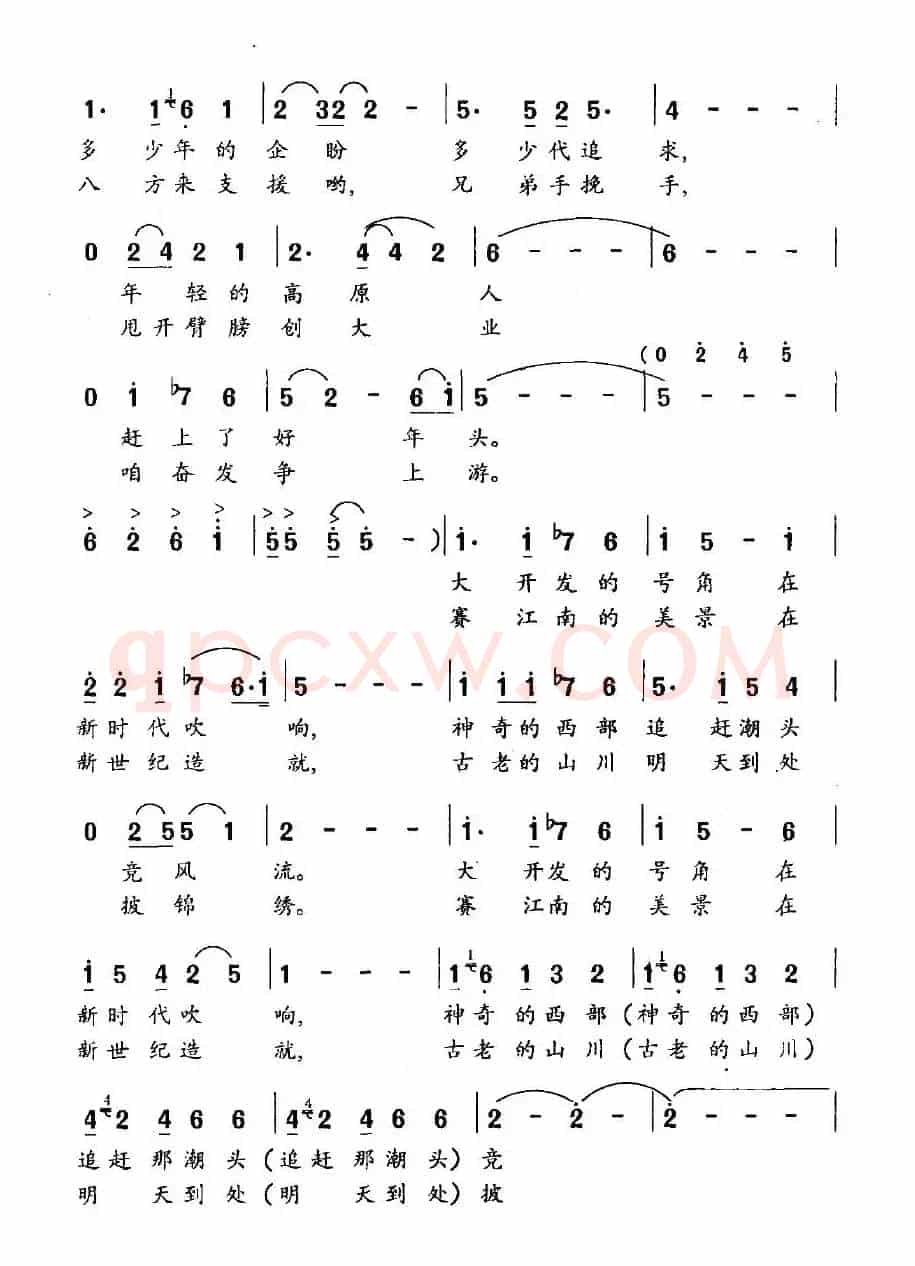 1· 1 6 1 | 2 32 2 - | 5· 5 2 5· | 4 - - - |
多 少年的企盼 多 少代追 求,
八 方来支援哟, 兄 弟手挽 手,
0 2 4 2 1 | 2· 4 4 2 | 6 - - - | 6 - - - |
年 轻的高 原 人
甩开臂膀创大 业
(0 2 4 5
0 1 ♭7 6 | 5 2 - 6 1 | 5 - - - | 5 - - - |
赶上了好 年 头。
咱奋发争 上 游。
> > > > > > >
6 2 6 1 | 5 5 5 5 - ) | 1· 1 ♭7 6 | 1 5 - 1 |
大 开发的号角 在
赛 江南的美景 在
2 2 1 ♭7 6·1 | 5 - - - | 1 1 1 ♭7 6 | 5· 1 5 4 |
新时代吹 响, 神奇的西部 追 赶潮头
新世纪造 就, 古老的山川 明 天到处
0 2 5 5 1 | 2 - - - | 1· 1 ♭7 6 | 1 5 - 6 |
竞风 流。 大 开发的 号角 在
披锦 绣。 赛 江南的 美景 在
1 5 4 2 5 | 1 - - - | 1 6 1 3 2 | 1 6 1 3 2 |
新时代吹 响, 神奇 的西部(神奇的西部)
新世纪造 就, 古老 的山川(古老的山川)
4 2 4 6 6 | 4 2 4 6 6 | 2 - 2 - | 2 - - - |
追赶 那潮头(追赶 那潮头)竞
明 天到处(明 天到处)披
qpcxw.COM